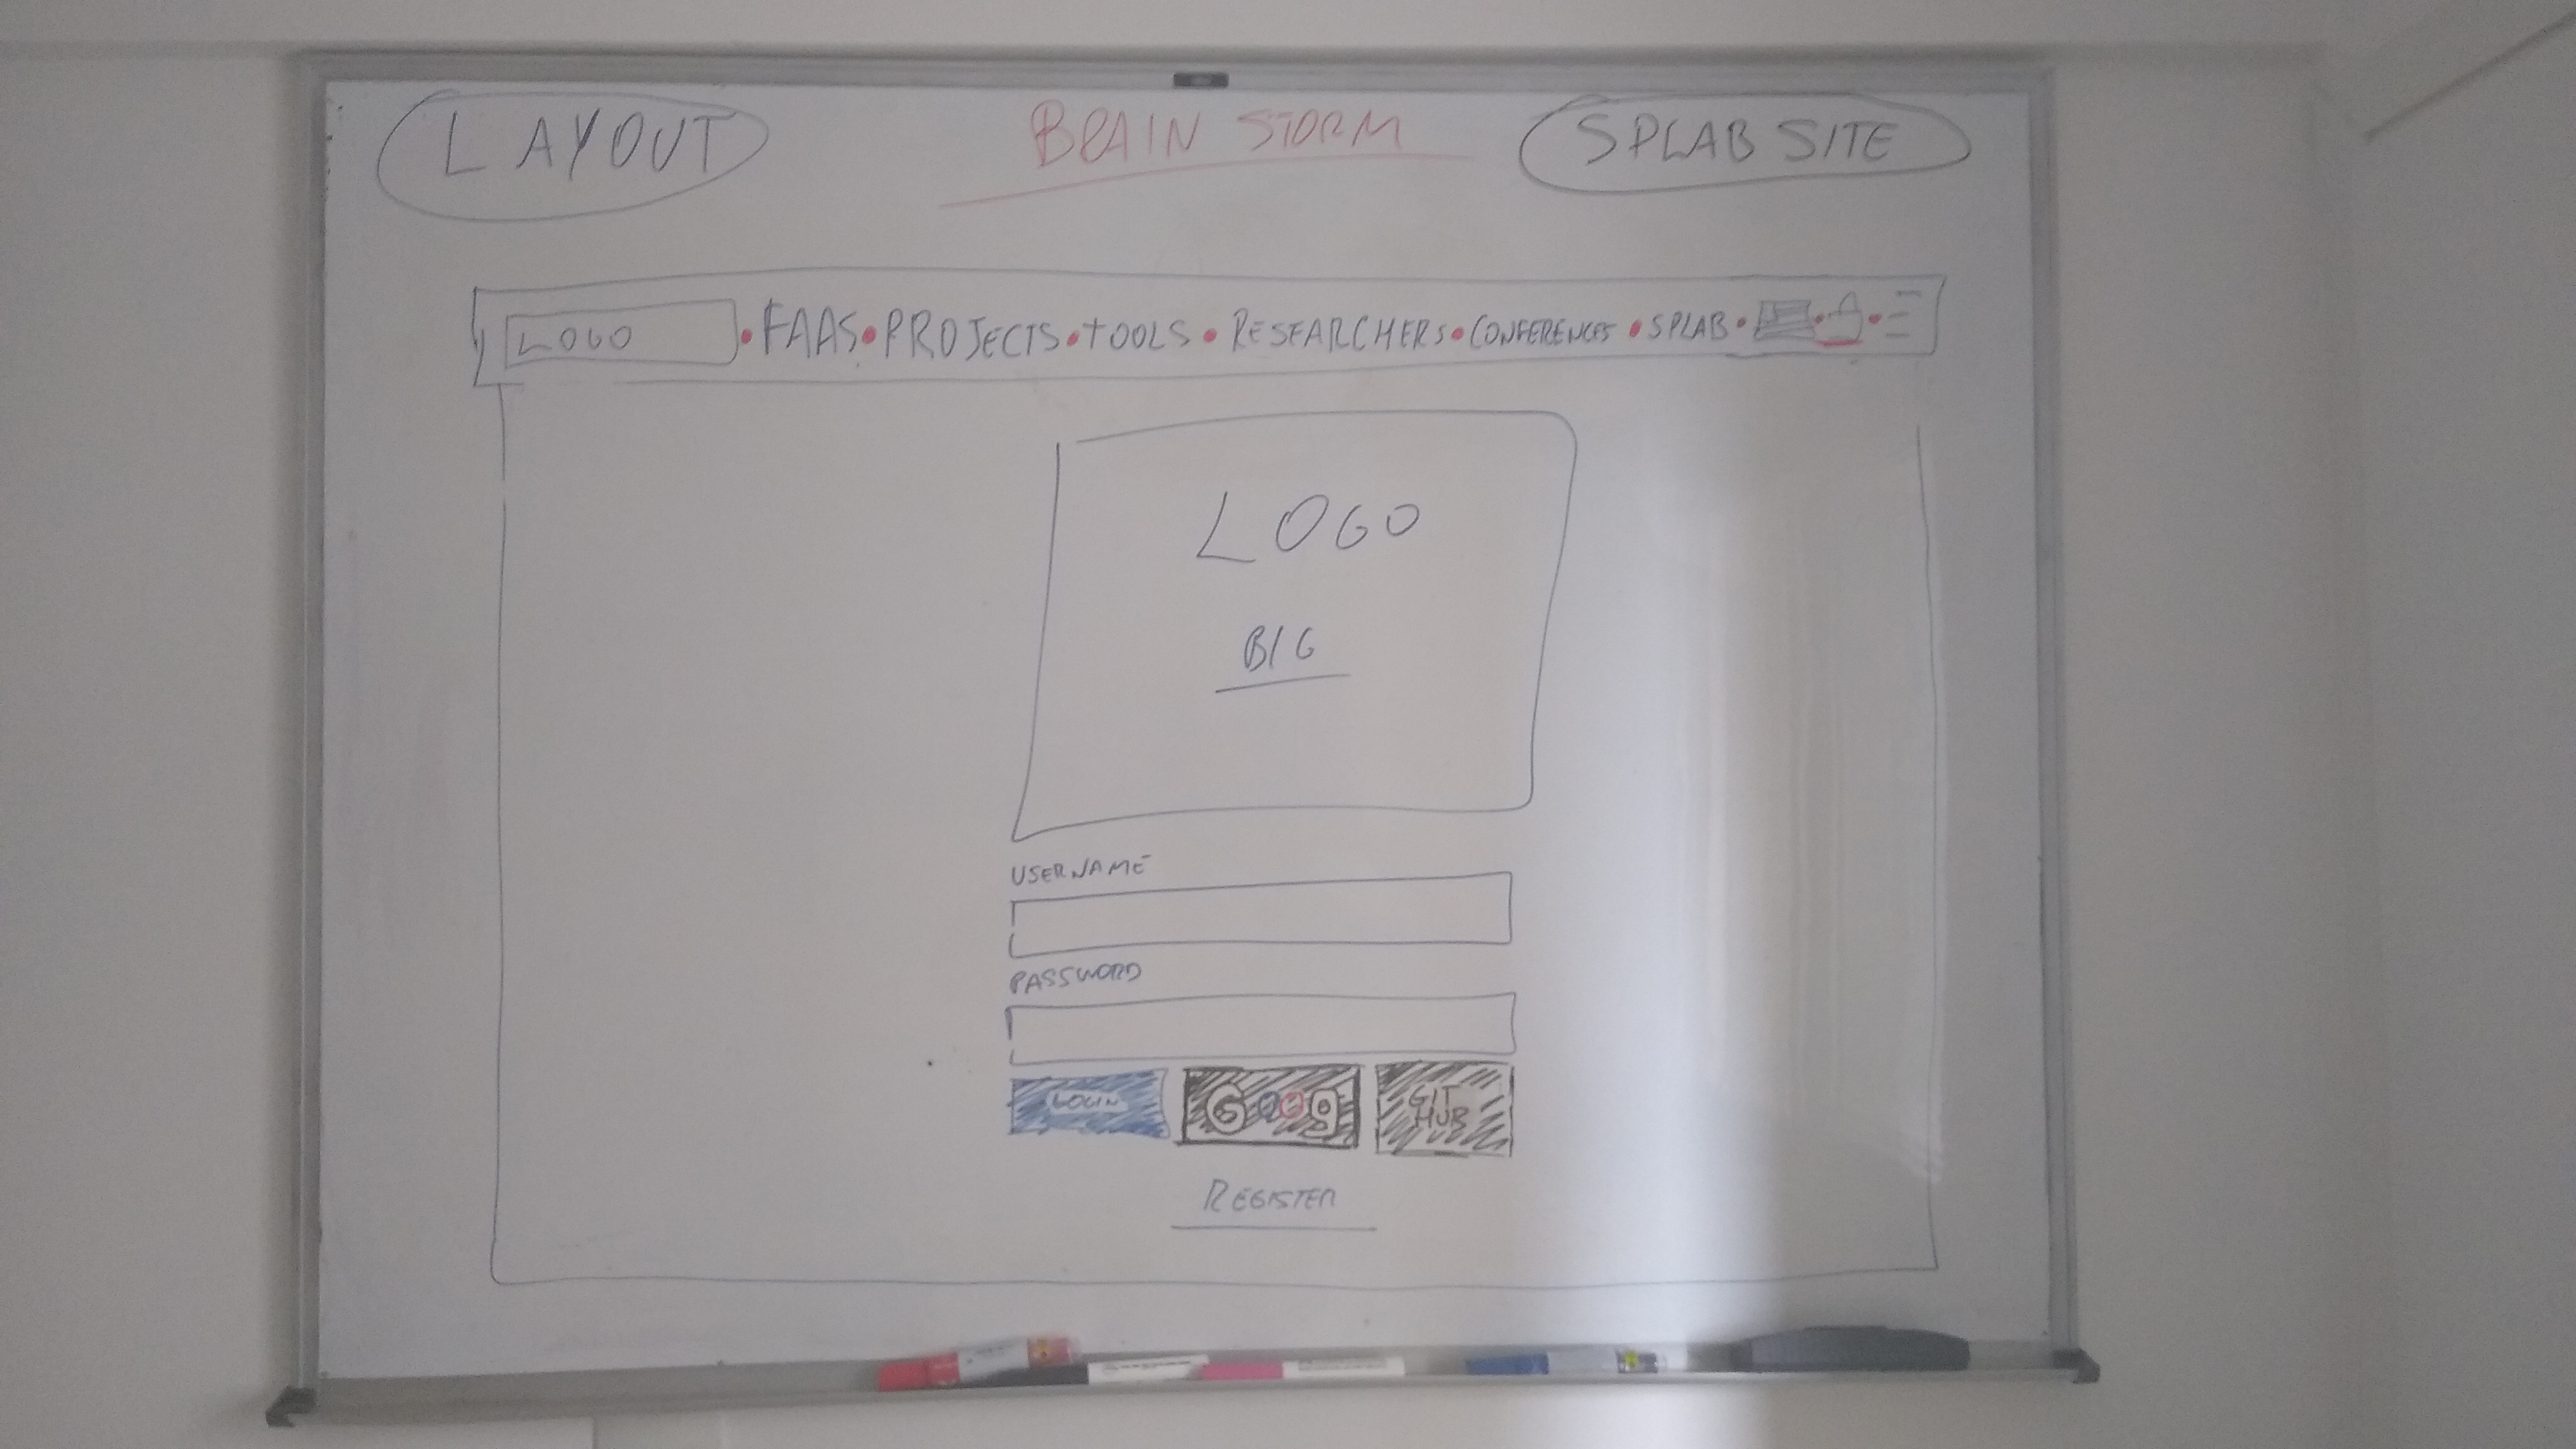 LAYOUT BRAIN STORM SPLAB SITE
LOGO • FAAS • PROJECTS • TOOLS • RESEARCHERS • CONFERENCES • SPLAB •
LOGO
BIG
USERNAME
PASSWORD
LOGIN Goog GIT
HUB
REGISTER